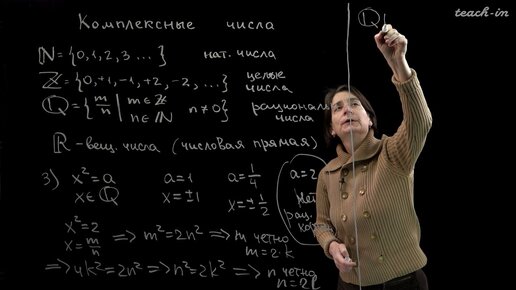 teach-in
Комплексные числа
ℕ = {0, 1, 2, 3 ...} нат. числа
ℤ = {0, +1, -1, +2, -2, ...} целые числа
ℚ = {m/n | m ∈ ℤ n ∈ ℕ n ≠ 0} рациональ числа
ℝ - вещ. числа (числовая прямая)
3) x² = a a = 1 a = 1/4 a = 2
x ∈ ℚ x = ±1 x = ±1/2 рац.
x² = 2
x = m/n ⇒ m² = 2n² ⇒ m четно
m = 2·k
⇒ 4k² = 2n² ⇒ n² = 2k² ⇒ n четно
ℚ